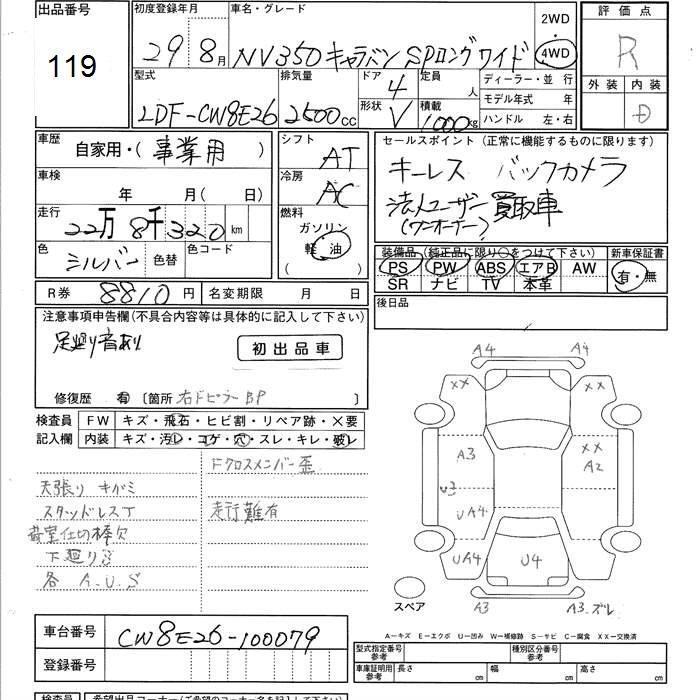 出品番号
119
初度登録年月
29 8月
車名・グレード
NV350 キャラバン SPロング ワイド
2WD
・
4WD
評価点
R
外装 内装
D
型式
LDF-CW8E26
排気量
2500cc
ドア
4
形状
V
定員
人
積載
1000kg
ディーラー・並 行
モデル年式 年
ハンドル 左・右
車歴
自家用・( 事業用 )
車検
年 月( 日)
走行
22万 8千320 km
色
シルバー
色替
色コード
R券 8810円
名変期限 月 日
シフト
AT
冷房
AC
燃料
ガソリン
軽 油
( )
セールスポイント (正常に機能するものに限ります)
キーレス バックカメラ
法人ユーザー買取車
(ワンオーナー)
装備品 (純正品に限り○をつけて下さい)
PS PW ABS エアB AW
SR ナビ TV 本革
新車保証書
有・無
後日品
注意事項申告欄(不具合内容等は具体的に記入して下さい)
足廻り音あり
初出品車
修復歴 有 〔箇所 右ドピラーBP 〕
検査員
記入欄
FW キズ・飛石・ヒビ割・リペア跡・×要
内装 キズ・汚レ・コゲ・穴・スレ・キレ・破レ
Fクロスメンバー歪
天張り キバミ
スタッドレスT
走行難有
荷室仕切棒欠
下廻りS
各 A.U.S
A4 A4
XX XX
A3
XX
A2
U3
UA4
UA4 U4
A3 A3.ズレ
スペア
A-キズ E-エクボ U-凹み W-補修跡 S-サビ C-腐食 XX-交換済
車台番号
CW8E26-100079
登録番号
型式指定番号
参考
種別区分番号
参考
車庫証明用
参考
長さ cm 幅 cm 高さ cm
検査員
希望出品コーナー(ご希望のコーナー名を記入して下さい)